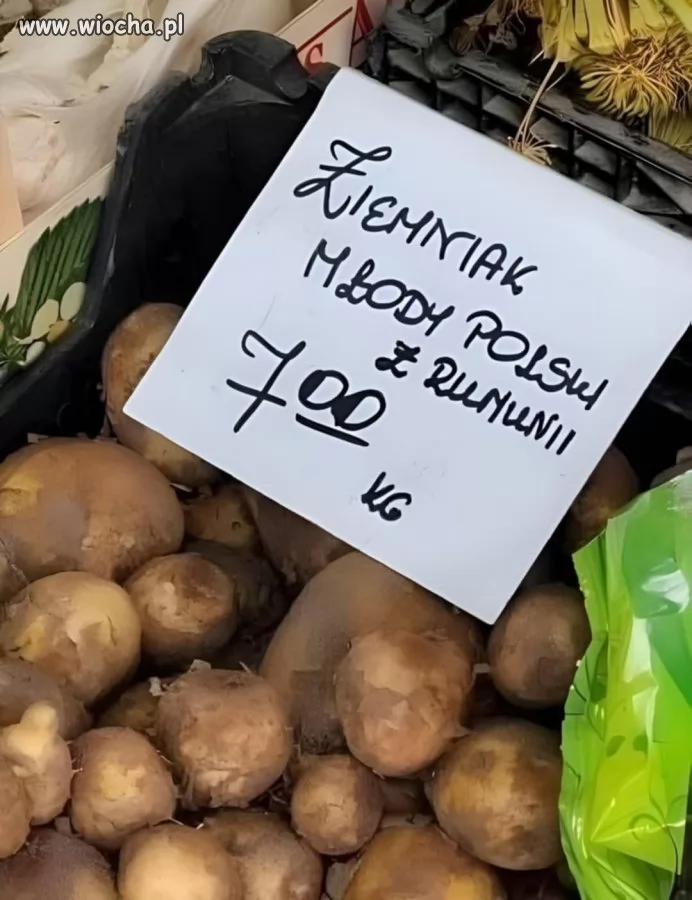 www.wiocha.pl
ZIEMNIAK
MŁODY POLSKI
Z RUMUNII
7 00
KG